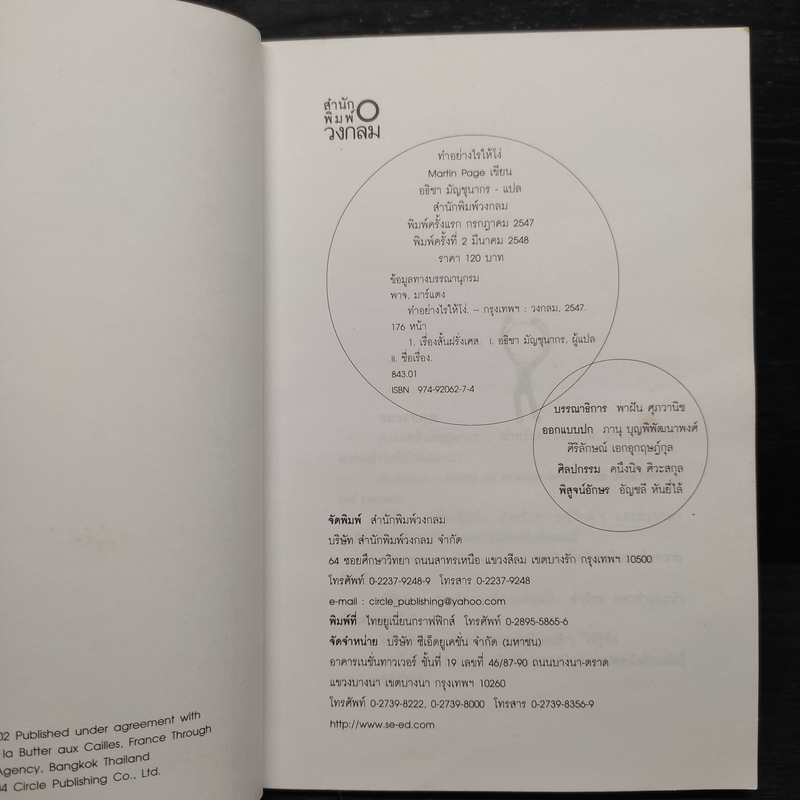 สำนัก
พิมพ์
วงกลม
ทำอย่างไรให้โง่
Martin Page เขียน
อธิชา มัญชุนากร - แปล
สำนักพิมพ์วงกลม
พิมพ์ครั้งแรก กรกฎาคม 2547
พิมพ์ครั้งที่ 2 มีนาคม 2548
ราคา 120 บาท
ข้อมูลทางบรรณานุกรม
พาจ, มาร์แตง
ทำอย่างไรให้โง่. -- กรุงเทพฯ : วงกลม, 2547.
176 หน้า
1. เรื่องสั้นฝรั่งเศส. I. อธิชา มัญชุนากร, ผู้แปล
II. ชื่อเรื่อง.
843.01
ISBN 974-92062-7-4
บรรณาธิการ พาฝัน ศุภวานิช
ออกแบบปก ภานุ บุญพิพัฒนาพงศ์
ศิริลักษณ์ เอกอุกฤษฎ์กุล
ศิลปกรรม คนึงนิจ ศิวะสกุล
พิสูจน์อักษร อัญชลี หันยี่ไล้
จัดพิมพ์ สำนักพิมพ์วงกลม
บริษัท สำนักพิมพ์วงกลม จำกัด
64 ซอยศึกษาวิทยา ถนนสาทรเหนือ แขวงสีลม เขตบางรัก กรุงเทพฯ 10500
โทรศัพท์ 0-2237-9248-9 โทรสาร 0-2237-9248
e-mail : circle_publishing@yahoo.com
พิมพ์ที่ ไทยยูเนี่ยนกราฟฟิกส์ โทรศัพท์ 0-2895-5865-6
จัดจำหน่าย บริษัท ซีเอ็ดยูเคชั่น จำกัด (มหาชน)
อาคารเนชั่นทาวเวอร์ ชั้นที่ 19 เลขที่ 46/87-90 ถนนบางนา-ตราด
แขวงบางนา เขตบางนา กรุงเทพฯ 10260
โทรศัพท์ 0-2739-8222, 0-2739-8000 โทรสาร 0-2739-8356-9
http://www.se-ed.com
02 Published under agreement with
la Butter aux Cailles, France Through
Agency, Bangkok Thailand
4 Circle Publishing Co., Ltd.